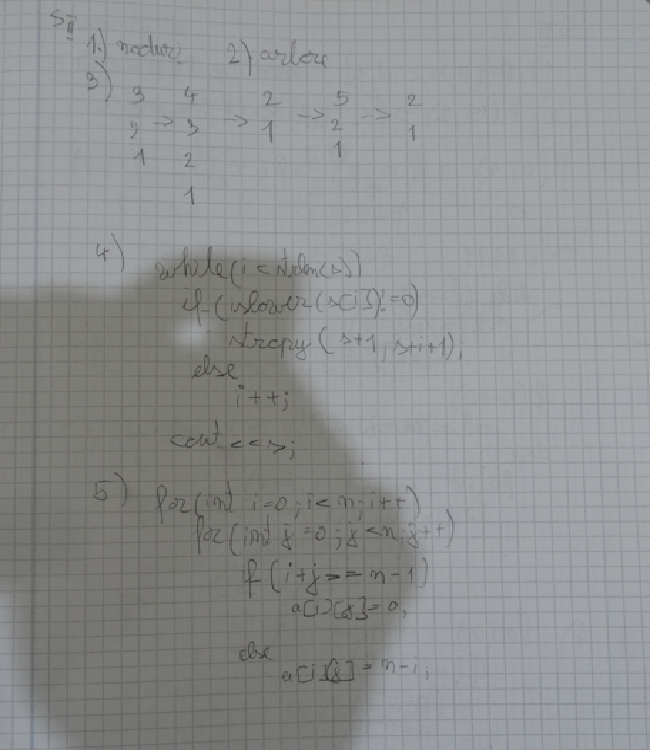 SII
1.) 2) arbore
3)
3 4 2 5 2
2 -> 3 -> 1 -> 2 -> 1
1 2 1
1
4) while(i<strlen(s))
if (islower(s[i])!=0)
strcpy(s+1, s+i+1);
else
i++;
cout<<s;
5) for(int i=0; i<n; i++)
for(int j=0; j<n; j++)
if (i+j>=n-1)
a[i][j]=0;
else
a[i][j]=n-i;